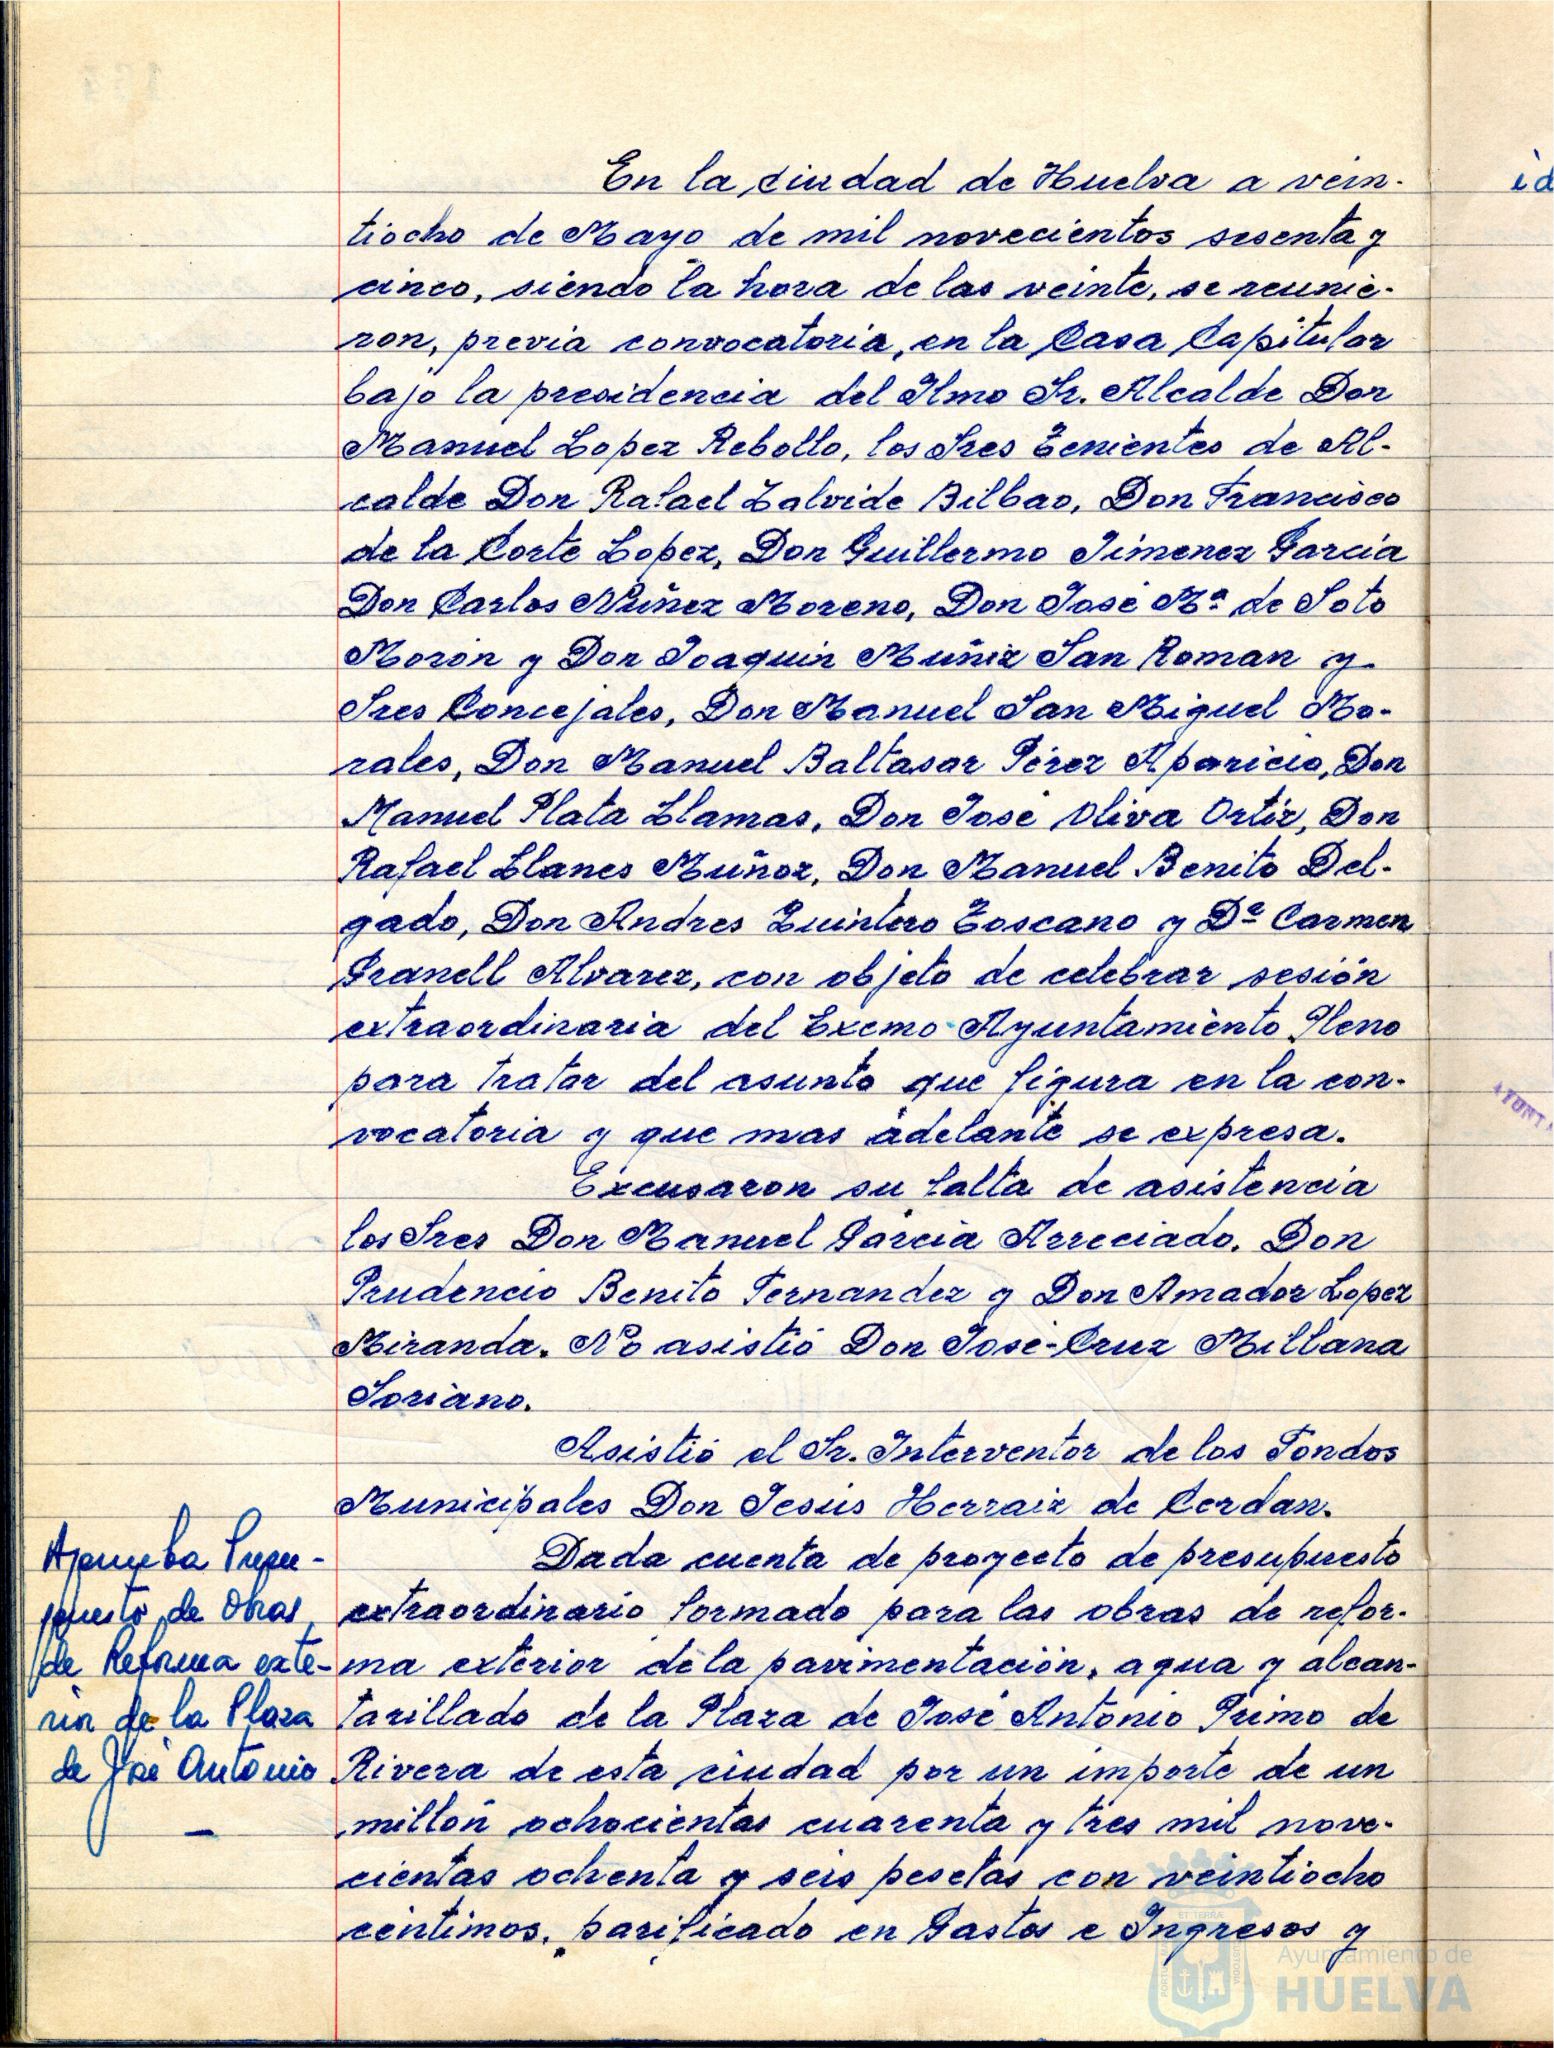 En la ciudad de Huelva a vein-
tiocho de Mayo de mil novecientos sesenta y
cinco, siendo la hora de las veinte, se reunie-
ron, previa convocatoria, en la Casa Capitular
bajo la presidencia del Ilmo Sr. Alcalde Don
Manuel Lopez Rebollo, los Sres Tenientes de Al-
calde Don Rafael Zalvide Bilbao, Don Francisco
de la Corte Lopez, Don Guillermo Jimenez Garcia
Don Carlos Núñez Moreno, Don José Mª de Soto
Morón y Don Joaquin Muñiz San Roman y
Sres Concejales, Don Manuel San Miguel Mo-
rales, Don Manuel Baltasar Pérez Aparicio, Don
Manuel Plata Llamas, Don José Oliva Ortíz, Don
Rafael Llanes Muñoz, Don Manuel Benito Del-
gado, Don Andres Quintero Toscano y Dª Carmen
Granell Alvarez, con objeto de celebrar sesión
extraordinaria del Excmo Ayuntamiento Pleno
para tratar del asunto que figura en la con-
vocatoria y que mas adelante se expresa.
Excusaron su falta de asistencia
los Sres Don Manuel Garcia Arreciado, Don
Prudencio Benito Fernandez y Don Amador Lopez
Miranda. No asistió Don José-Cruz Millana
Soriano.
Asistió el Sr. Interventor de los Fondos
Municipales Don Jesús Herraiz de Cerdan.
Aprueba Presu-
puesto de Obras
de Reforma exte-
rior de la Plaza
de José Antonio
Dada cuenta de proyecto de presupuesto
extraordinario formado para las obras de refor-
ma exterior de la pavimentación, agua y alcan-
tarillado de la Plaza de José Antonio Primo de
Rivera de esta ciudad por un importe de un
millon ochocientas cuarenta y tres mil nove-
cientas ochenta y seis pesetas con veintiocho
centimos, parificado en Gastos e Ingresos y
id
AYUNTA
Ayuntamiento de
HUELVA